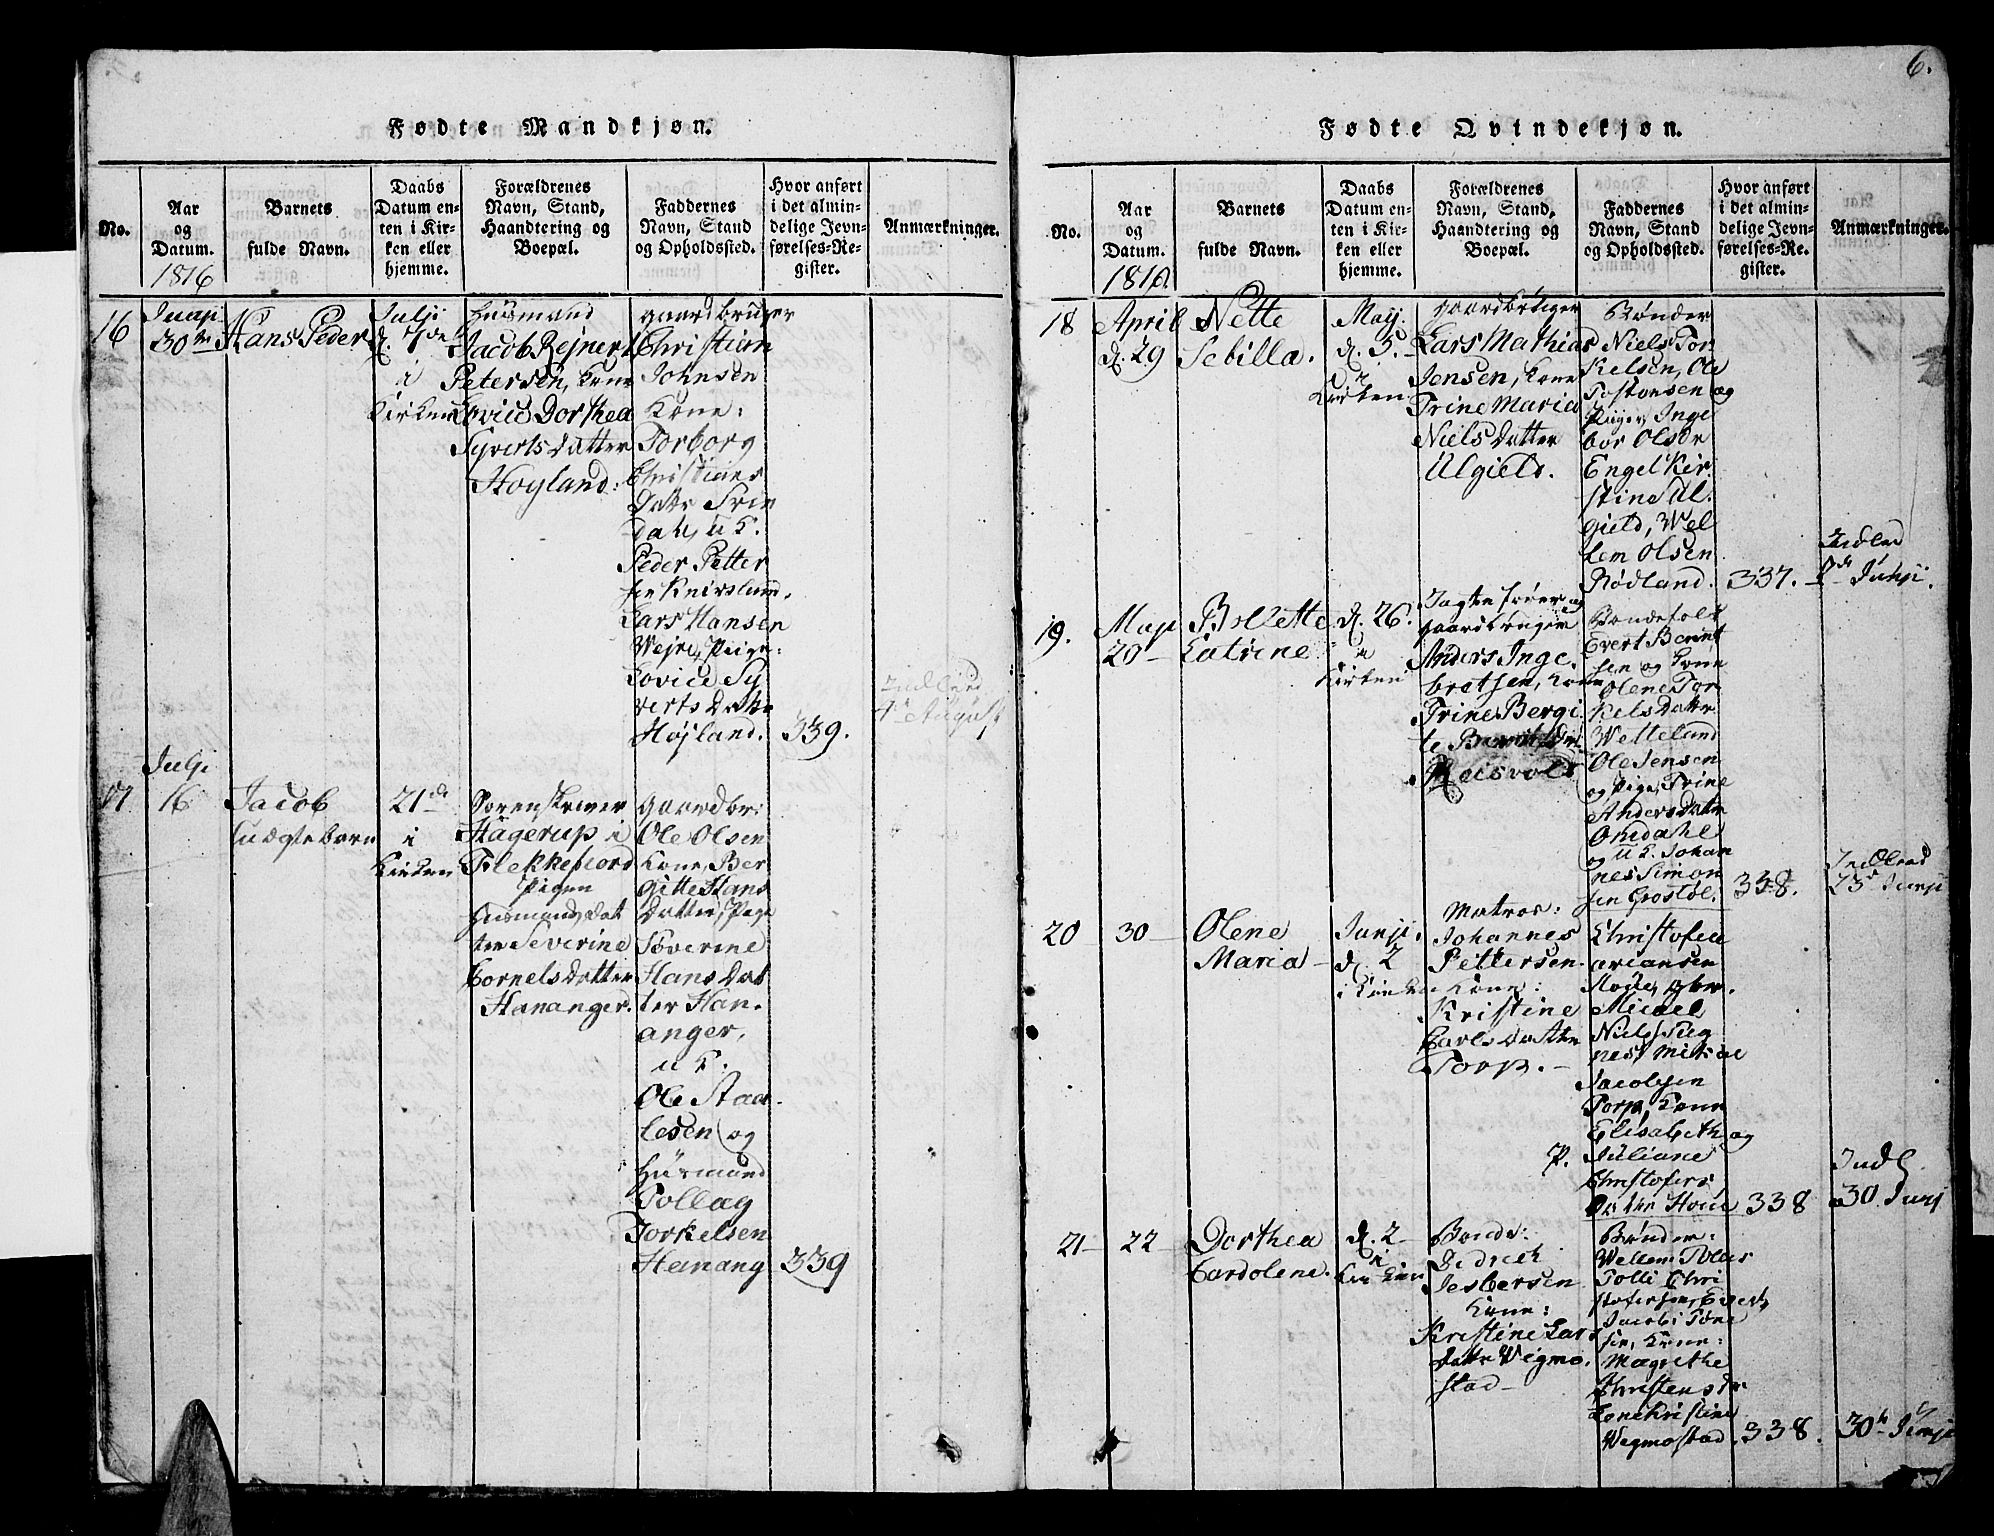 6.
Fødte Mandkjøn.
No.
Aar
og
Datum.
1816
Barnets
fulde Navn.
Daabs
Datum en-
ten i Kir-
ken eller
hjemme.
Forældrenes
Navn, Stand,
Haandtering og
Boepæl.
Faddernes
Navn, Stand
og Opholdssted.
Hvor anført
i det almin-
delige Jevn-
førelses-Re-
gister.
Anmærkninger.
16
Junji
30
Hans Peder
Julji
d. 7de
i
Kirken
Husmand
Jacob Rejnert
Petersen, Kone
Lovice Dorthea
Syverts Datter
Hoyland:
gaardbruger
Christian
Johnsen
Kone:
Torborg
Christians
Dattr
dahl, u K.
Peder Petter
sen
Lars Hansen
Wejre, Pige:
Lovice Sy
verts Dattr
Højland.
339.
Indlevd
4de August
17
Julji
16
Jacob
uægte barn
21de
i
Kirken
Sorenskriver
Hagerup i
Flekkefiord
Pigen
Husmands Dat
ter Severine
Cornels Datter
Hananger.
gaardbr:
Ole Olsen
Kone, Ber
gitte Hans
Datter, Pige
Soverine
Hans Dat
ter Han-
anger,
u K.
Ole Staa-
lesen og
Husmand
Tollag
Torkelsen
Henang
339
Fødte Qvindekjøn.
No.
Aar
og
Datum.
1816
Barnets
fulde Navn.
Daabs
Datum en-
ten i Kir-
ken eller
hjemme.
Forældrenes
Navn, Stand,
Haandtering og
Boepæl.
Faddernes
Navn, Stand
og Opholdssted.
Hvor anført
i det almin-
delige Jevn-
førelses-Re-
gister.
Anmærkninger.
18
April
d. 29
Nette
Sebilla.
Maij
d. 5.
i
Kirken
gaardbruger
Lars Mathias
Jensen, Kone
Trine Maria
Niels Datter
Ulgield.
Bønder
Niels Tor
kelsen, Ole
Tostensen og
Piger, Inge
bor Olsdr
Engel Kir
stine Ul-
gield, Wel
lem Olsen
Rødland.
337.
Indlevd
Junji.
19.
Maji
20
Bollette
Catrine
d. 26.
i
Kirken
og
gaardbruger
Anders Inge
bretsen, Kone
Trine Bergi
te
Bondefolk
Evert Berint
sen og Kone
Olene Tor
kels Dattr
Wetteland
Ole Jensen
og Pige, Trine
Anders Dattr
Okedahl
og u K. Johan
nes Simon
sen Grostøl.
338.
Indlevd
23de Junji
20
30
Olene
Maria
Junji.
d. 2
i Kirken
Matros:
Johannes
Pettersen
Kone:
Kristine
Carls Datter
Torp.
Christofer
ariansen
gbr.
Micael
Niels
Jacobsen
Torp, Kone
Elisabeth og
P. Juliane
Christofers
Datter
338
Indl
30 Junj
21
22
Dorthea
Cardolene.
d. 2
i
Kirken
Bonde:
Didrich
Jesbersen
Kone:
Kristine Lars
Dattr Vegmo
stad
Bønder:
Wellem
Tolli Chri
stofersen, Evert
Jacobi Tøne
sen, Kone:
Magrethe
Christens dr
Lene Kristine
Vegmostad.
338.
30te Junji